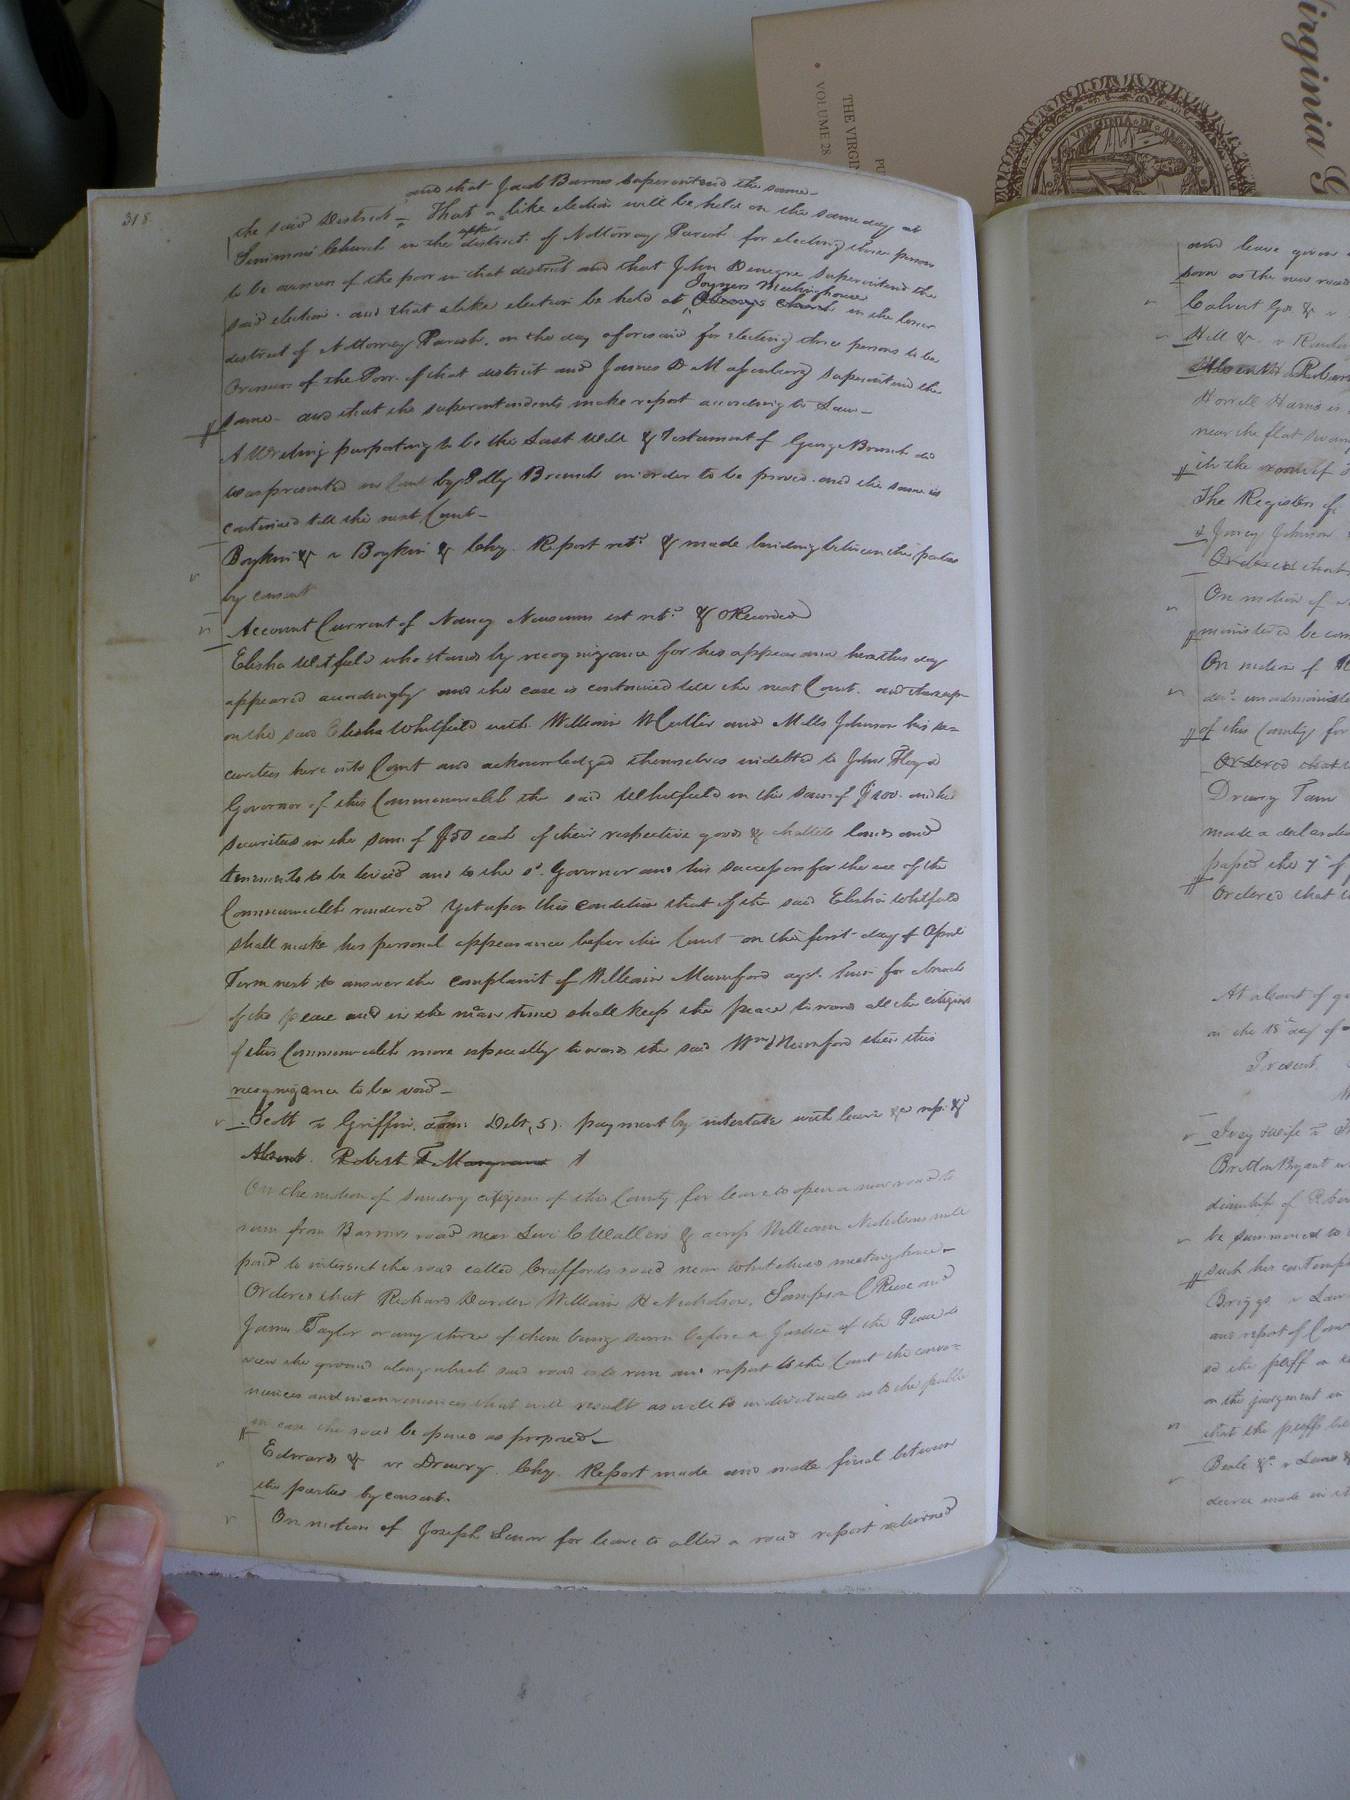 318.
and that Jacob Barnes superintend the same-
the said District - That a like election will be held on the same day at
Simmons Church in the upper district of Nottoway Parish for electing three persons
to be overseers of the poor in that district and that John Denegre superintend the
said election. and that a like election be held at Joyners Meetinghouse Church in the lower
district of Nottoway Parish. on the day aforesaid for electing three persons to be
Overseers of the Poor. of that district and James D Massenburg superintend the
same- and that the superintendents make report according to Law-
A Writing purporting to be the Last Will & Testament of George Branch dec
was presented in Court by Polly Branch in order to be proved. and the same is
continued till the next Court-
Boykin & v Boykin & Chy. Report retd & made binding between the parties
by consent
Account Current of Nancy Newsums est retd & ORecorded
Elisha Witfield who stands by recognizance for his appearance here this day
appeared accordingly and the case is continued till the next Court. and thereup-
on the said Elisha Whitfield with William and Mills Johnson his se=
curities here into Court and acknowledged themselves indebted to John Floyd
Governor of this Commonwealth the said Whitfield in the sum of $100. and his
securities in the sum of $50 each of their respective goods & chattels lands and
tenements to be levied and to the sd. Governor and his successors for the use of the
Commonwealth rendered Yet upon this condition that if the said Elisha Whitfield
shall make his personal appearance before this Court on the first day of April
Term next to answer the complaint of William Mumford agst. him for breach
of the peace and in the mean time shall keep the peace towards all the citizens
of this Commonwealth more especially towards the said Wm Mumford then this
recognizance to be void-
Scott v Griffin. Debt, 5). payment by intestate with leave & rep: &
Absent. Robert T Musgrave
On the motion of sundry citizens of this County for leave to open a new road to
run from Barnes road near Levi C Wallers & across William Nicholsons mill
pond to intersect the road called Craffords road near Whitehead meeting house-
Ordered that Richard Darden William H Nicholson, Sampson C Reese and
James Taylor or any three of them being sworn before a Justice of the Peace do
view the ground along which said road is to run and report to the Court the conve=
niences and inconveniences that will result as well to individuals as to the public
in case the road be opened as proposed-
Edwards & vs Drewry. Chy. Report made and made final between
the parties by consent.
On motion of Joseph for leave to alter a road report returned
and leave given
soon as the new road
Calvert Gn & v
Hill & v
near the flat swamp
in the room of
The Register of
Johnson
Ordered that
On motion of
ministered be com
On motion of
decd. unadministe
of this County for
Ordered that
Drewry
made a declaration
passed the 7th of
Ordered that
At a Court of qu
on the 18th day of
Present.
Ivey & wife v
Britton Bryant
be summoned to
such his contempt
Briggs v
and report of Com
on the judgment in
that the plffs
Beale & v
decree made in
THE VIRGIN
VOLUME 28
Virginia G